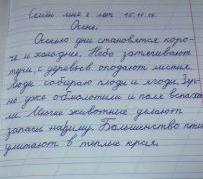 Семён мне 8 лет 15.11.16.
Осень.
Осенью дни становятся коро-
че и холодней. Небо затягивают
тучи, с деревьев опадают листья.
Люди собирают плоды и ягоды. Зер-
но уже обмолотили и поля вспаха-
ли. Многие животные делают
запасы на зиму. Большинство птиц
улетают в тёплые края.